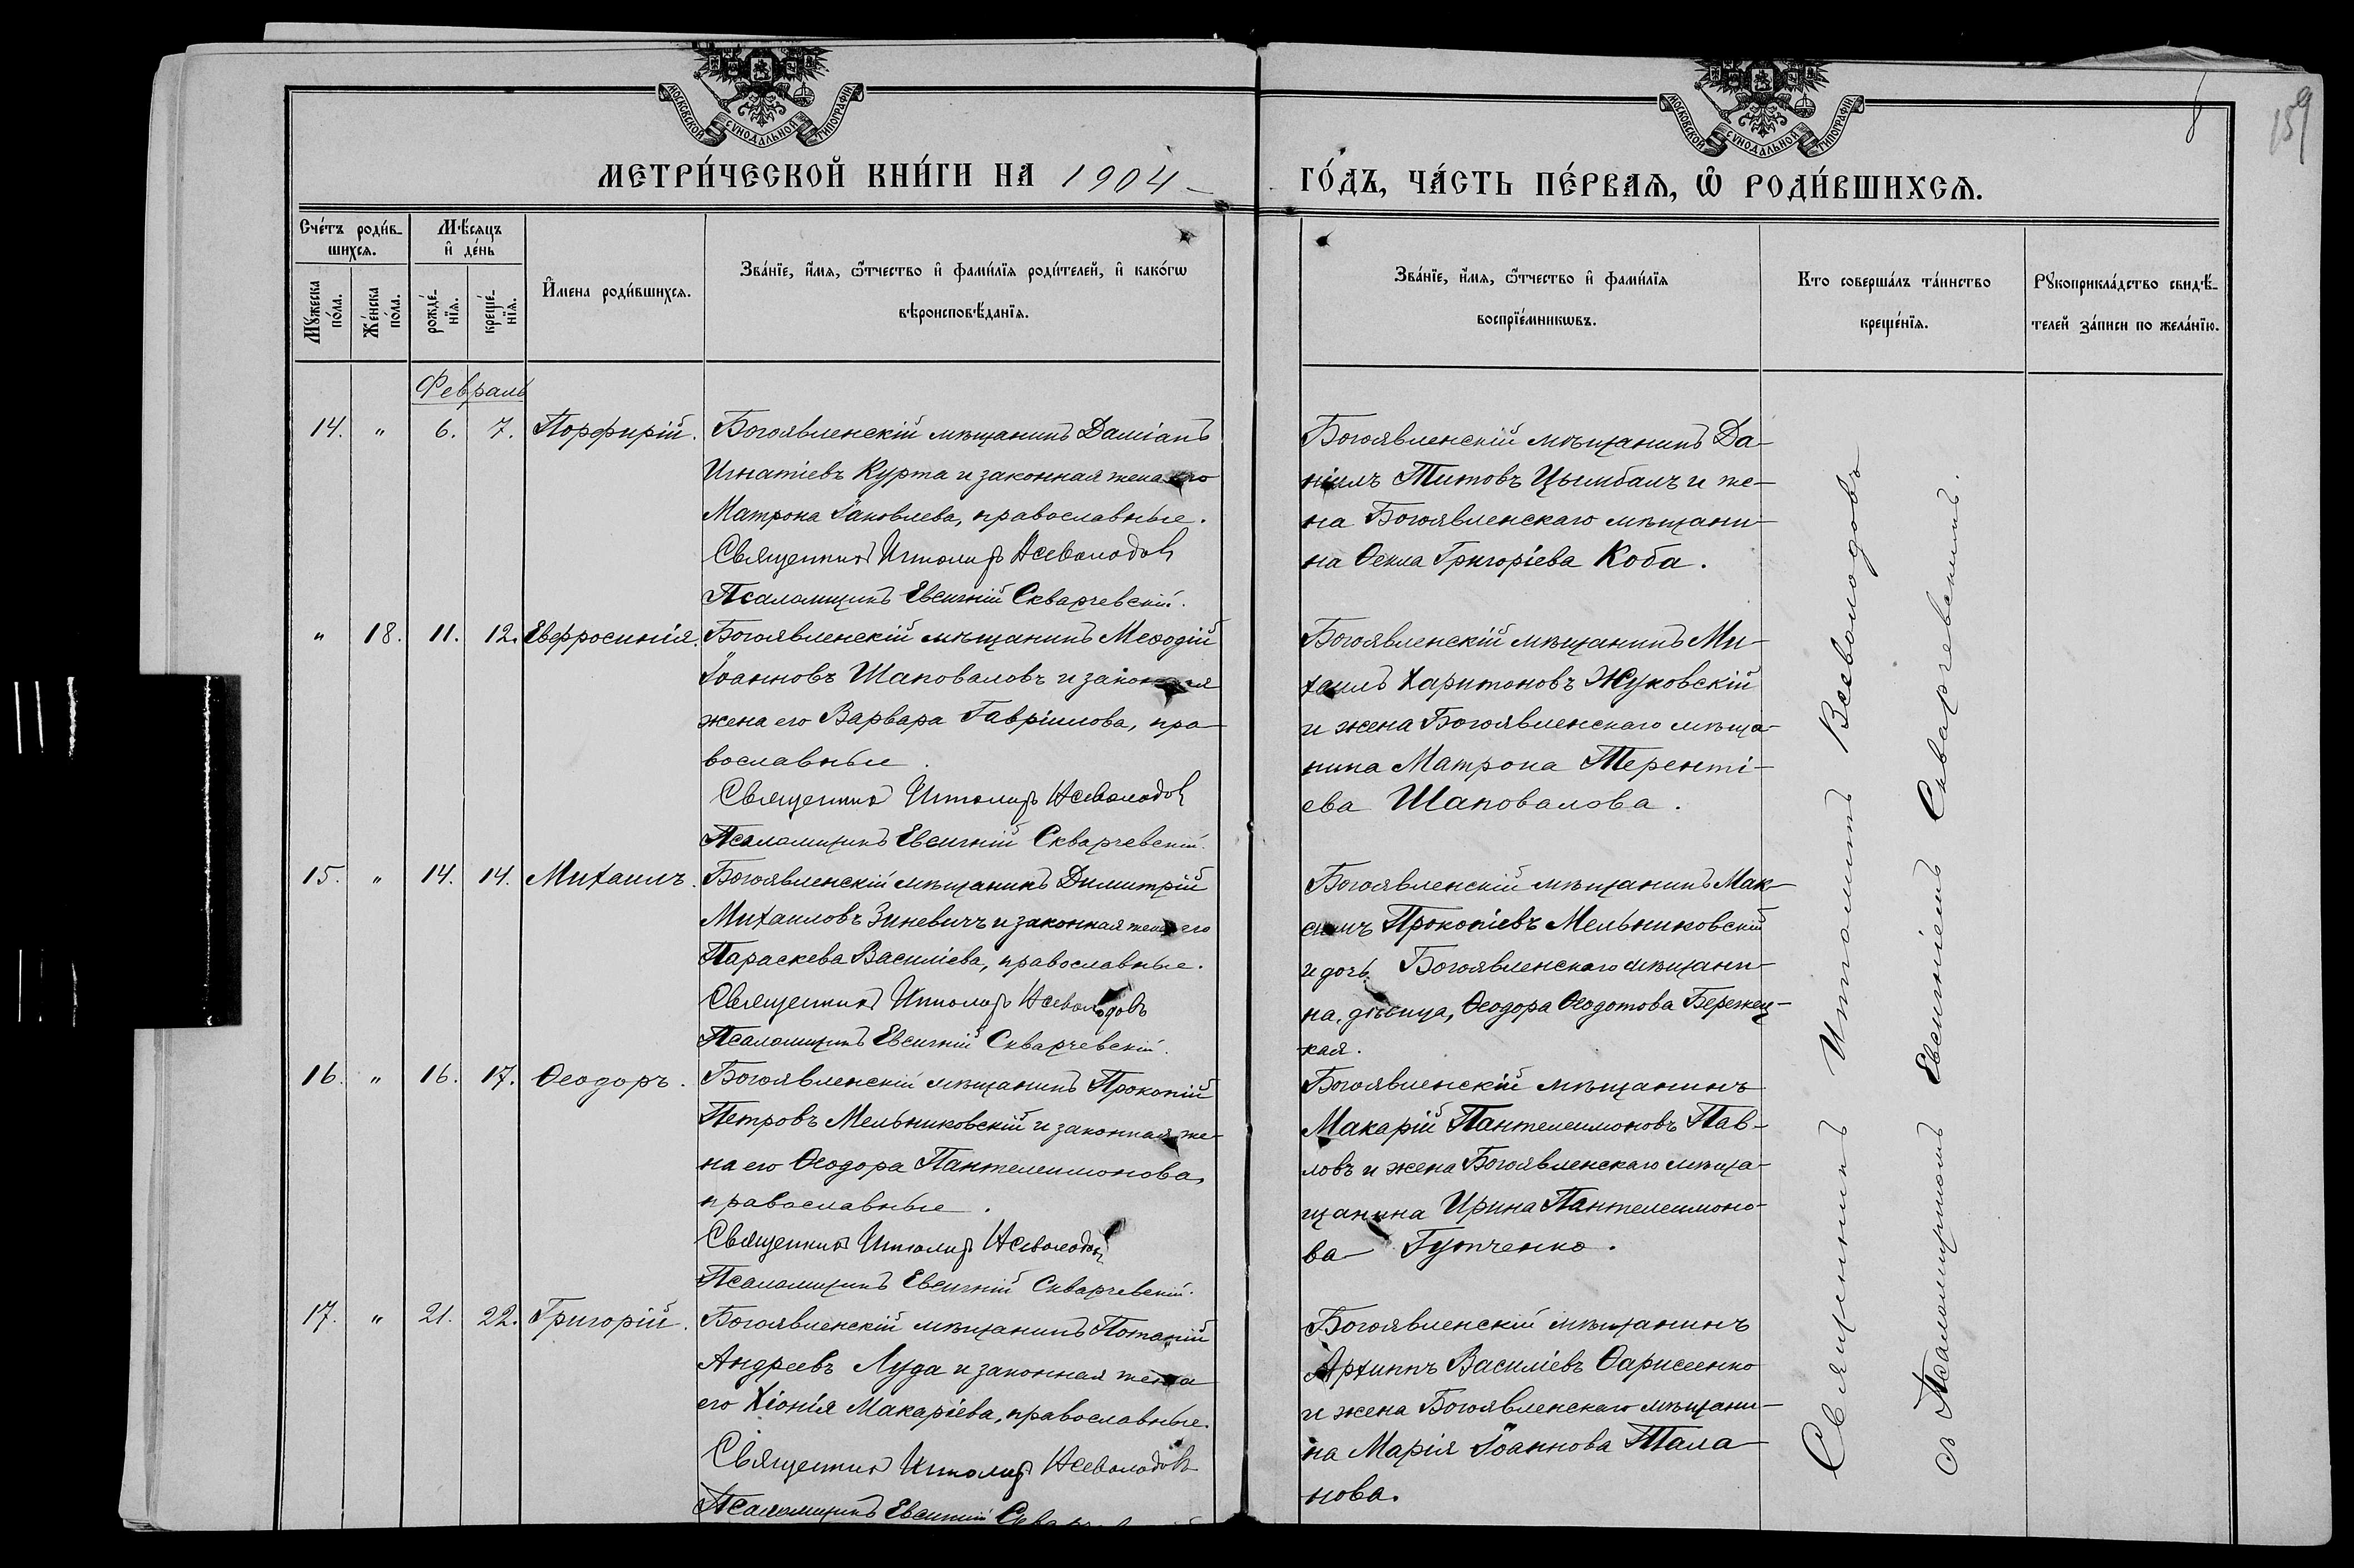 МОСКОВСКОЙ СѴНОДАЛЬНОЙ ТИПОГРАФІИ
МОСКОВСКОЙ СѴНОДАЛЬНОЙ ТИПОГРАФІИ
8
159
МЕТРИ́ЧЕСКОЙ КНИ́ГИ НА 1904 ГО́ДЪ, ЧА́СТЬ ПЕ́РВАѦ, Ѡ҆ РОДИ́ВШИХСѦ.
Сче́тъ роди́в-
шихсѧ.
Мꙋ́жеска
по́ла.
Же́нска
по́ла.
Мѣ́сѧцъ
и҆ де́нь
рожде́-
нїѧ.
креще́-
нїѧ.
И҆мена роди́вшихсѧ.
Зва́нїе, и҆́мѧ, ѻ҆́тчество и҆ фами́лїѧ роди́телей, и҆ како́гѡ
вѣроисповѣ́данїѧ.
Зва́нїе, и҆́мѧ, ѻ҆́тчество и҆ фами́лїѧ
воспрїе́мникѡвъ.
Кто соверша́лъ та́инство
креще́нїѧ.
Рꙋкоприкла́дство свидѣ́-
телей за́писи по жела́нїю.
Февраль
14. " 6. 7. Порфирій.
Богоявленскій мѣщанинъ Даміанъ
Игнатіевъ Курта и законная жена его
Матрона Іаковлева, православные.
Священникъ Ипполитъ Всеволодовъ
Псаломщикъ Евсигній Скварчевскій.
Богоявленскій мѣщанинъ Да-
ніилъ Титовъ Цымбалъ и же-
на Богоявленскаго мѣщани-
на Ѳекла Григоріева Коба.
" 18. 11. 12. Евфросинія.
Богоявленскій мѣщанинъ Меѳодій
Іоанновъ Шаповаловъ и законная
жена его Варвара Гавріилова, пра-
вославные.
Священникъ Ипполитъ Всеволодовъ
Псаломщикъ Евсигній Скварчевскій.
Богоявленскій мѣщанинъ Ми-
хаилъ Харитоновъ Жуковскій
и жена Богоявленскаго мѣща-
нина Матрона Теренті-
ева Шаповалова.
15. " 14. 14. Михаилъ.
Богоявленскій мѣщанинъ Димитрій
Михаиловъ Зиневичъ и законная жена его
Параскева Василіева, православные.
Священникъ Ипполитъ Всеволодовъ
Псаломщикъ Евсигній Скварчевскій.
Богоявленскій мѣщанинъ Мак-
симъ Прокопіевъ Мельниковскій
и дочь Богоявленскаго мѣщани-
на, дѣвица, Ѳеодора Ѳеодотова Бережец-
кая.
16. " 16. 17. Ѳеодоръ.
Богоявленскій мѣщанинъ Прокопій
Петровъ Мельниковскій и законная же-
на его Ѳеодора Пантелеимонова,
православные.
Священникъ Ипполитъ Всеволодовъ
Псаломщикъ Евсигній Скварчевскій.
Богоявленскій мѣщанинъ
Макарій Пантелеимоновъ Пав-
ловъ и жена Богоявленскаго мѣща-
щанина Ирина Пантелеимоно-
ва
17. " 21. 22. Григорій.
Богоявленскій мѣщанинъ Потапій
Андреевъ Луда и законная жена
его Хіонія Макаріева, православные.
Священникъ Ипполитъ Всеволодовъ
Псаломщикъ Евсигній
Богоявленскій мѣщанинъ
Архиппъ Василіевъ Ѳарисеенко
и жена Богоявленскаго мѣщани-
на Марія Іоаннова Тала-
нова.
Священникъ Ипполитъ Всеволодовъ
съ Псаломщикомъ Евсигніемъ Скварчевскимъ.